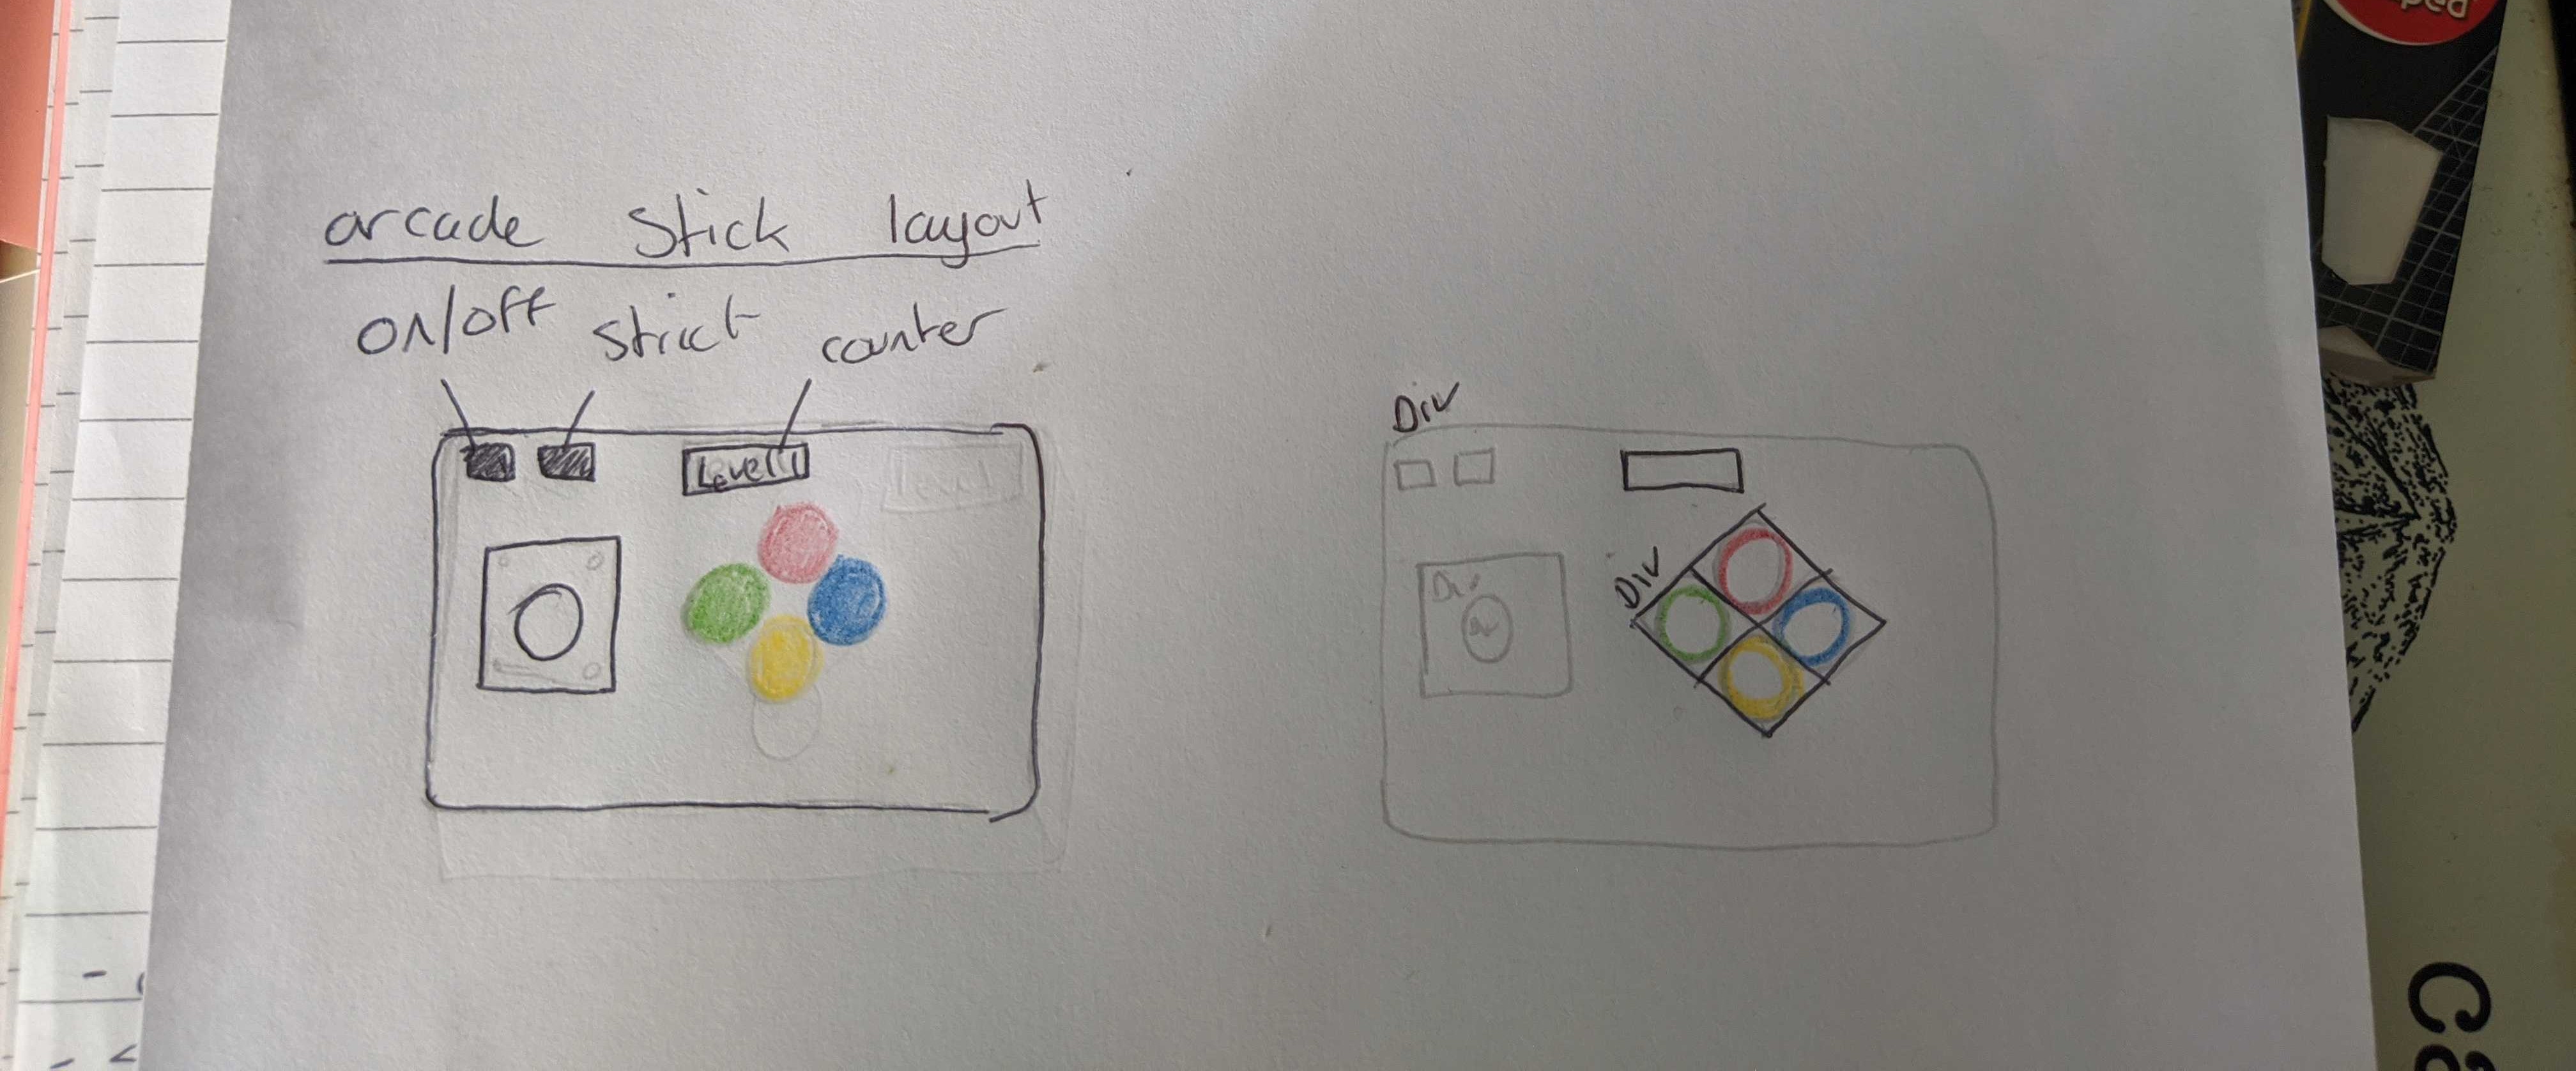 arcade stick layout
on/off strict counter
Level 1
Level
Div
Div
Div
ped
Ca